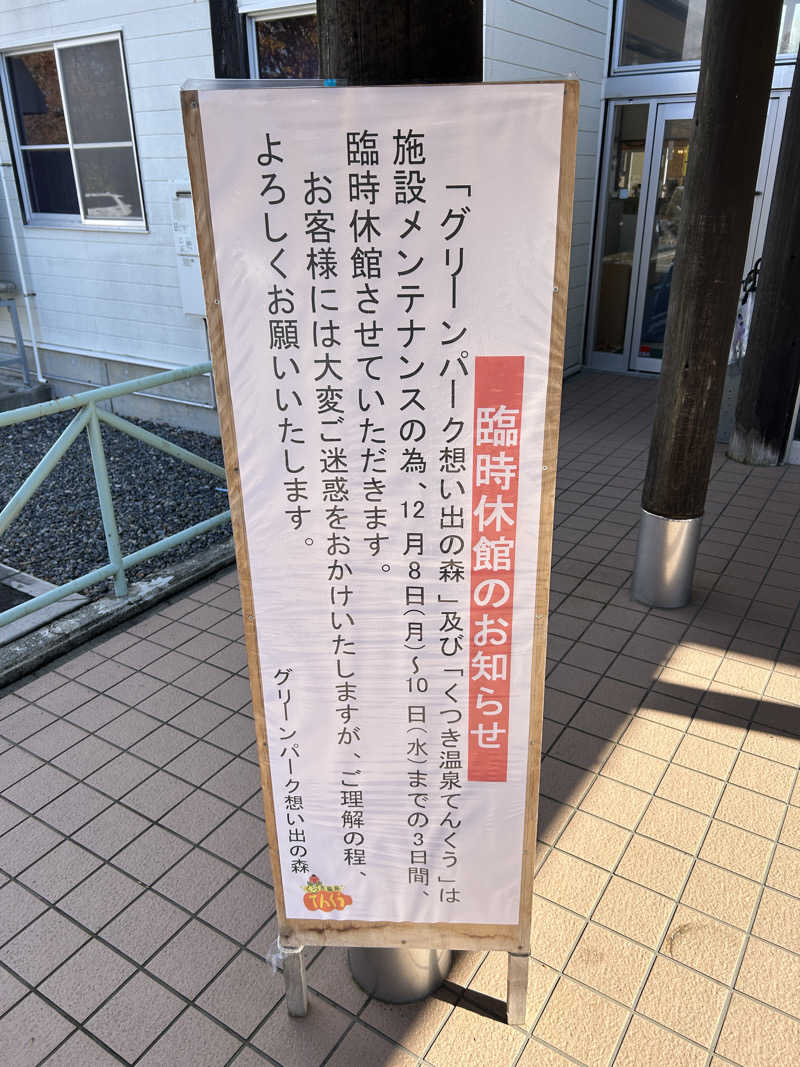 臨時休館のお知らせ
「グリーンパーク想い出の森」及び「くつき温泉てんくう」は
施設メンテナンスの為、12月8日(月)~10日(水)までの3日間、
臨時休館させていただきます。
お客様には大変ご迷惑をおかけいたしますが、ご理解の程、
よろしくお願いいたします。
グリーンパーク想い出の森
くつき温泉
てんくう